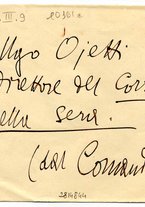 III. 9 20361a
Ugo Ojetti
Direttore del Cor
della Sera.
(dal Comand
2814844